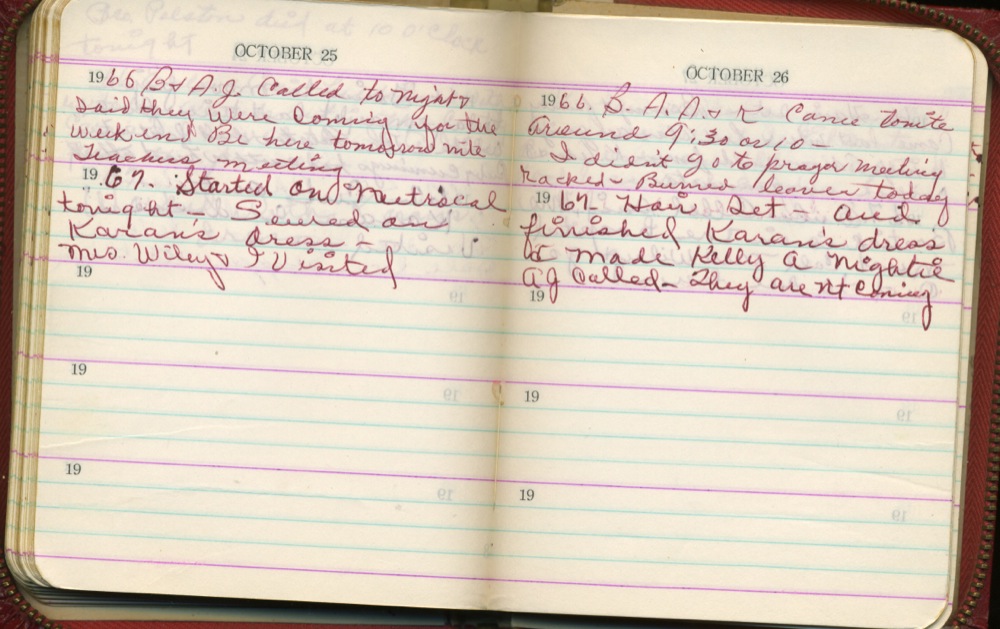 Bro Preston died at 10 O'Clock
tonight
OCTOBER 25
1966 B + A.J. Called tonight
said they were Coming for the
week end Be here tomorrow nite
Teachers meeting
1967. Started on Metrecal
tonight - Sewed on
Karan's dress -
Mrs. Wiley + I Visited
19
19
19
OCTOBER 26
1966. B. A. A + K Came tonite
Around 9:30 or 10 -
I didn't go to prayer meeting
Racked - Burned leaves today
1967 - Hair Set - and
finished Karan's dress
+ made Kelly a nightie
AJ called - They aren't coming
19
19
19